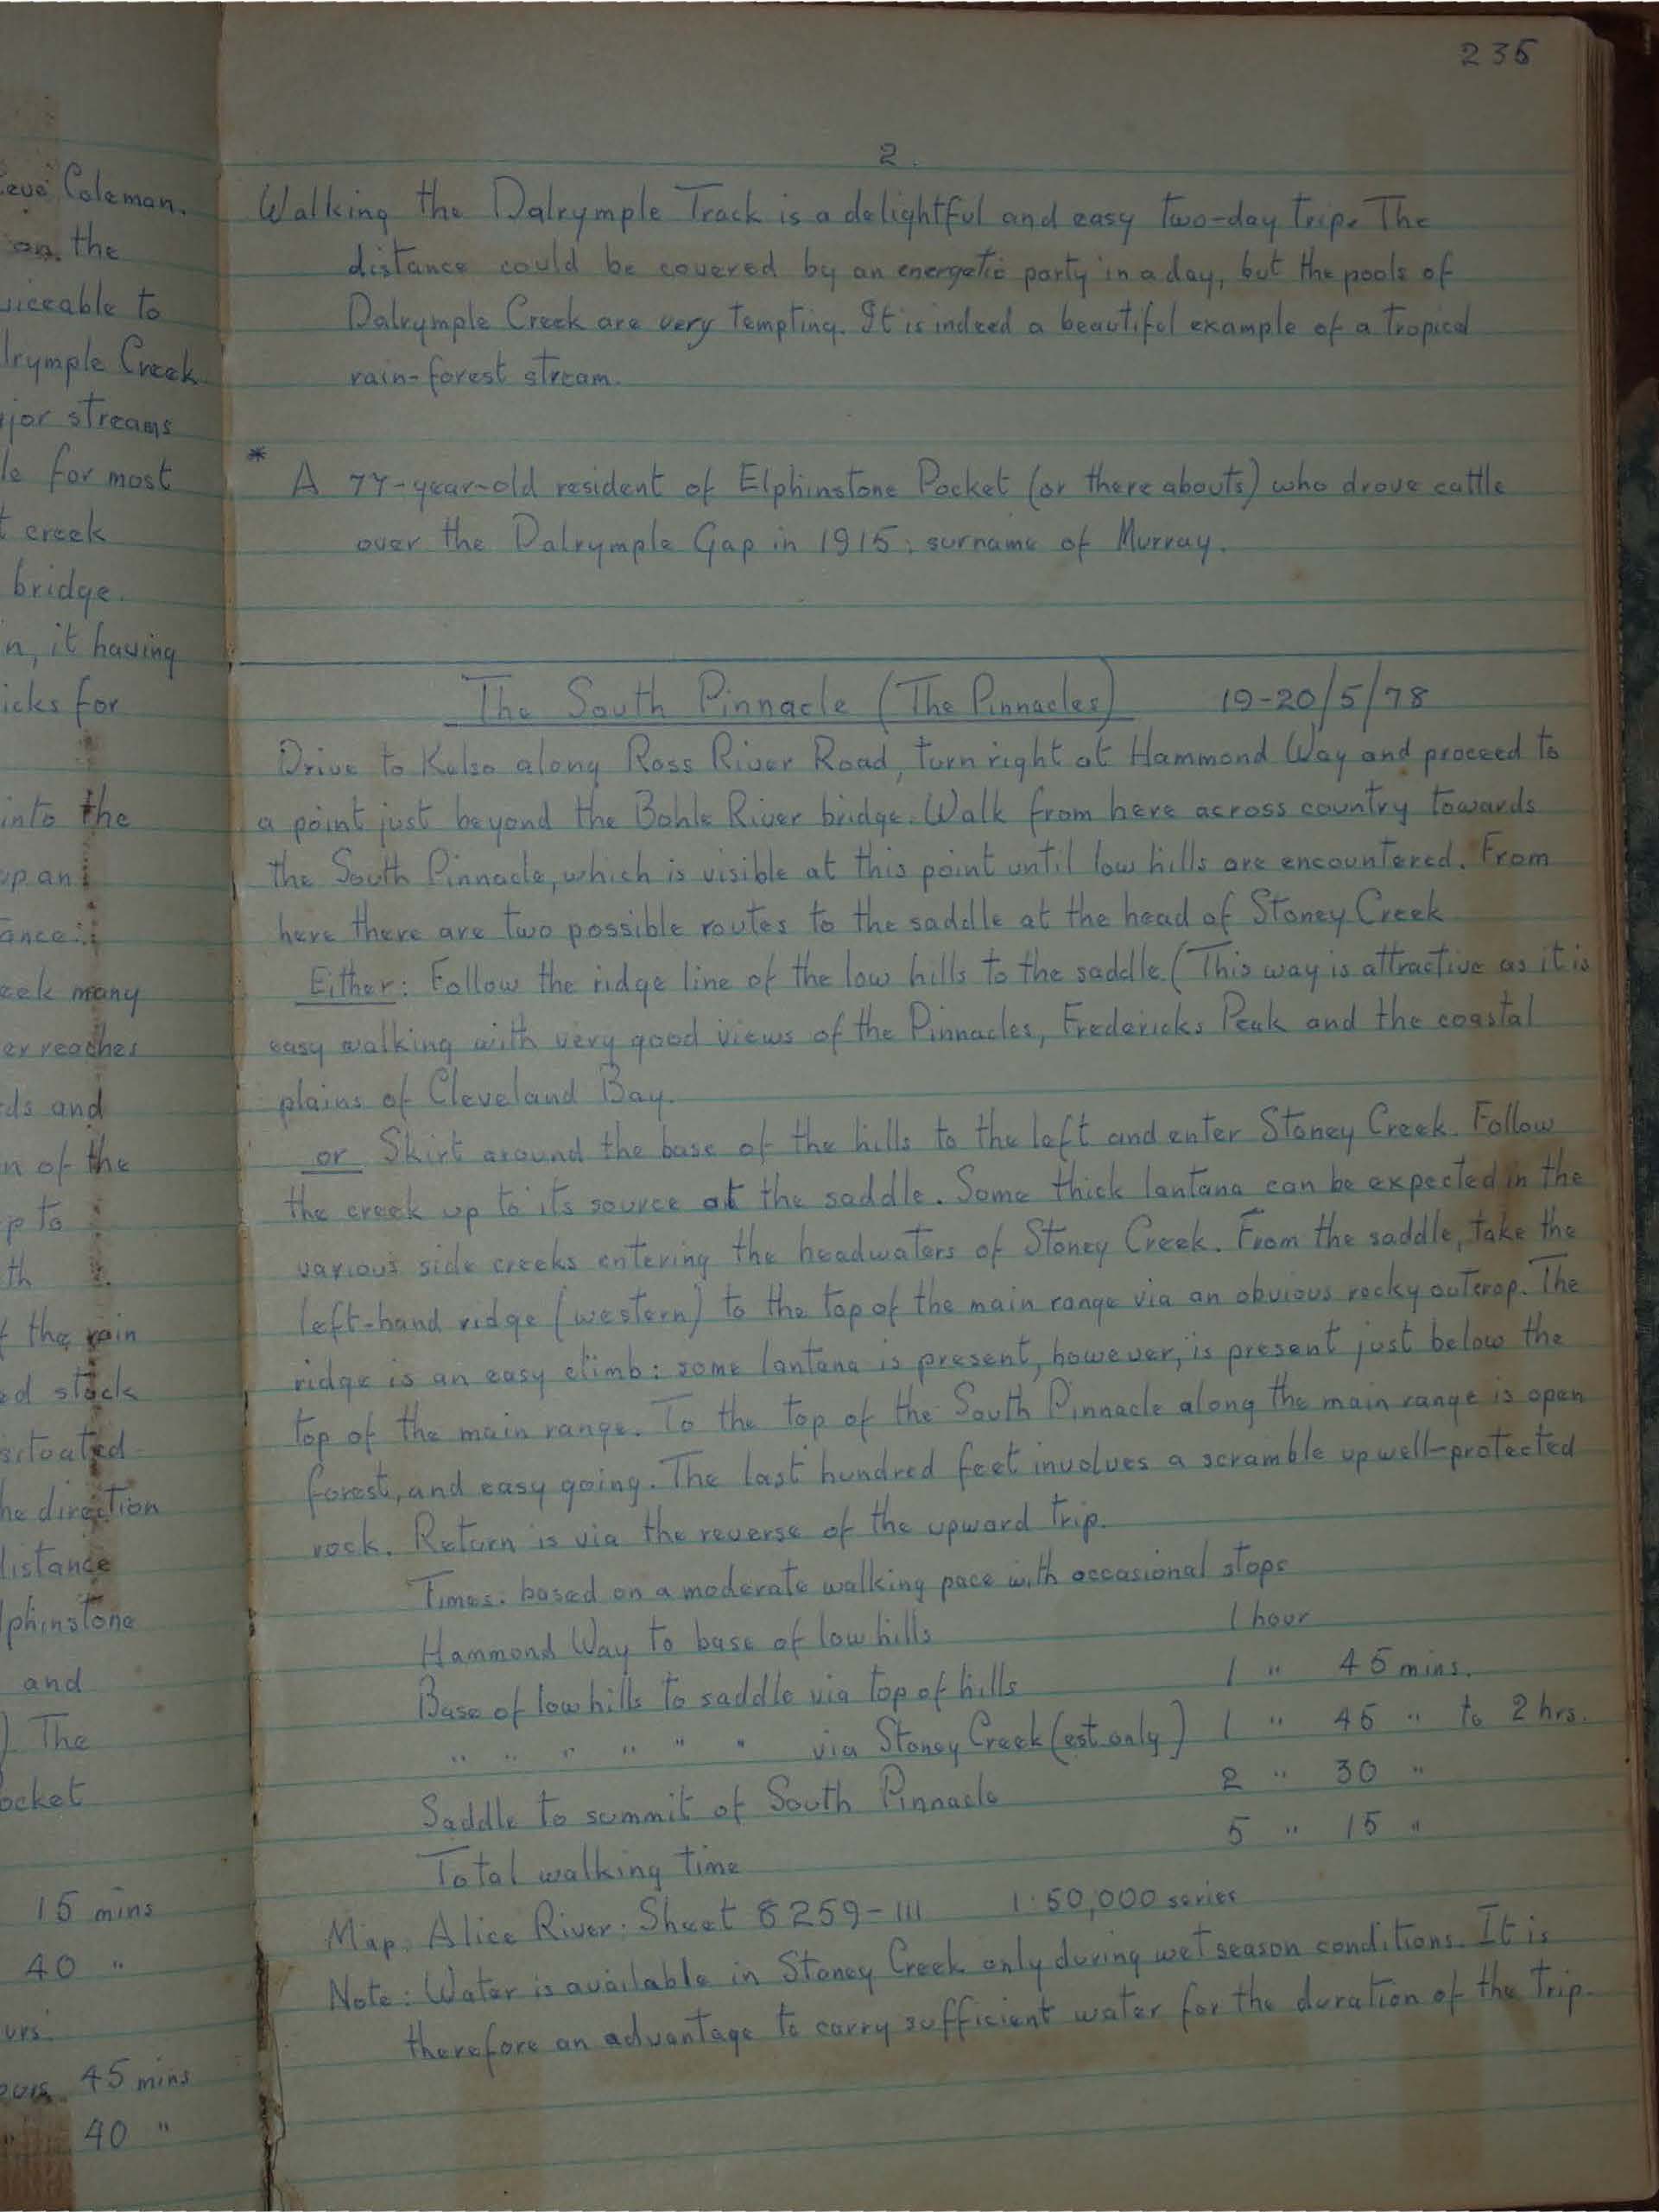 235
2.
Walking the Dalrymple Track is a delightful and easy two-day trip. The
distance could be covered by an energetic party in a day, but the pools of
Dalrymple Creek are very tempting. It is indeed a beautiful example of a tropical
rain-forest stream.
* A 77-year-old resident of Elphinstone Pocket (or there abouts) who drove cattle
over the Dalrymple Gap in 1915; surname of Murray.
The South Pinnacle (The Pinnacles) 19-20/5/78
Drive to Kelso along Ross River Road, turn right at Hammond Way and proceed to
a point just beyond the Bohle River bridge. Walk from here across country towards
the South Pinnacle, which is visible at this point until low hills are encountered. From
here there are two possible routes to the saddle at the head of Stoney Creek
Either: Follow the ridge line of the low hills to the saddle. (This way is attractive as it is
easy walking with very good views of the Pinnacles, Fredericks Peak and the coastal
plains of Cleveland Bay.
or Skirt around the base of the hills to the left and enter Stoney Creek. Follow
the creek up to its source at the saddle. Some thick lantana can be expected in the
various side creeks entering the headwaters of Stoney Creek. From the saddle, take the
left-hand ridge (western) to the top of the main range via an obvious rocky outcrop. The
ridge is an easy climb: some lantana is present, however, is present just below the
top of the main range. To the top of the South Pinnacle along the main range is open
forest, and easy going. The last hundred feet involves a scramble up well-protected
rock. Return is via the reverse of the upward trip.
Times: based on a moderate walking pace with occasional stops
Hammond Way to base of low hills 1 hour
Base of low hills to saddle via top of hills 1 " 45 mins.
" " " " " " via Stoney Creek (est only) 1 " 45 " to 2 hrs.
Saddle to summit of South Pinnacle 2 " 30 "
Total walking time 5 " 15 "
Map: Alice River: Sheet 8259-III 1:50,000 series
Note: Water is available in Stoney Creek only during wet season conditions. It is
therefore an advantage to carry sufficient water for the duration of the trip.
Coleman.
on the
to
Creek
streams
for most
creek
bridge.
it having
for
into the
up an
many
reaches
and
of the
to
the rain
stock
situated
direction
distance
and
The
15 mins
40 "
45 mins
40 "